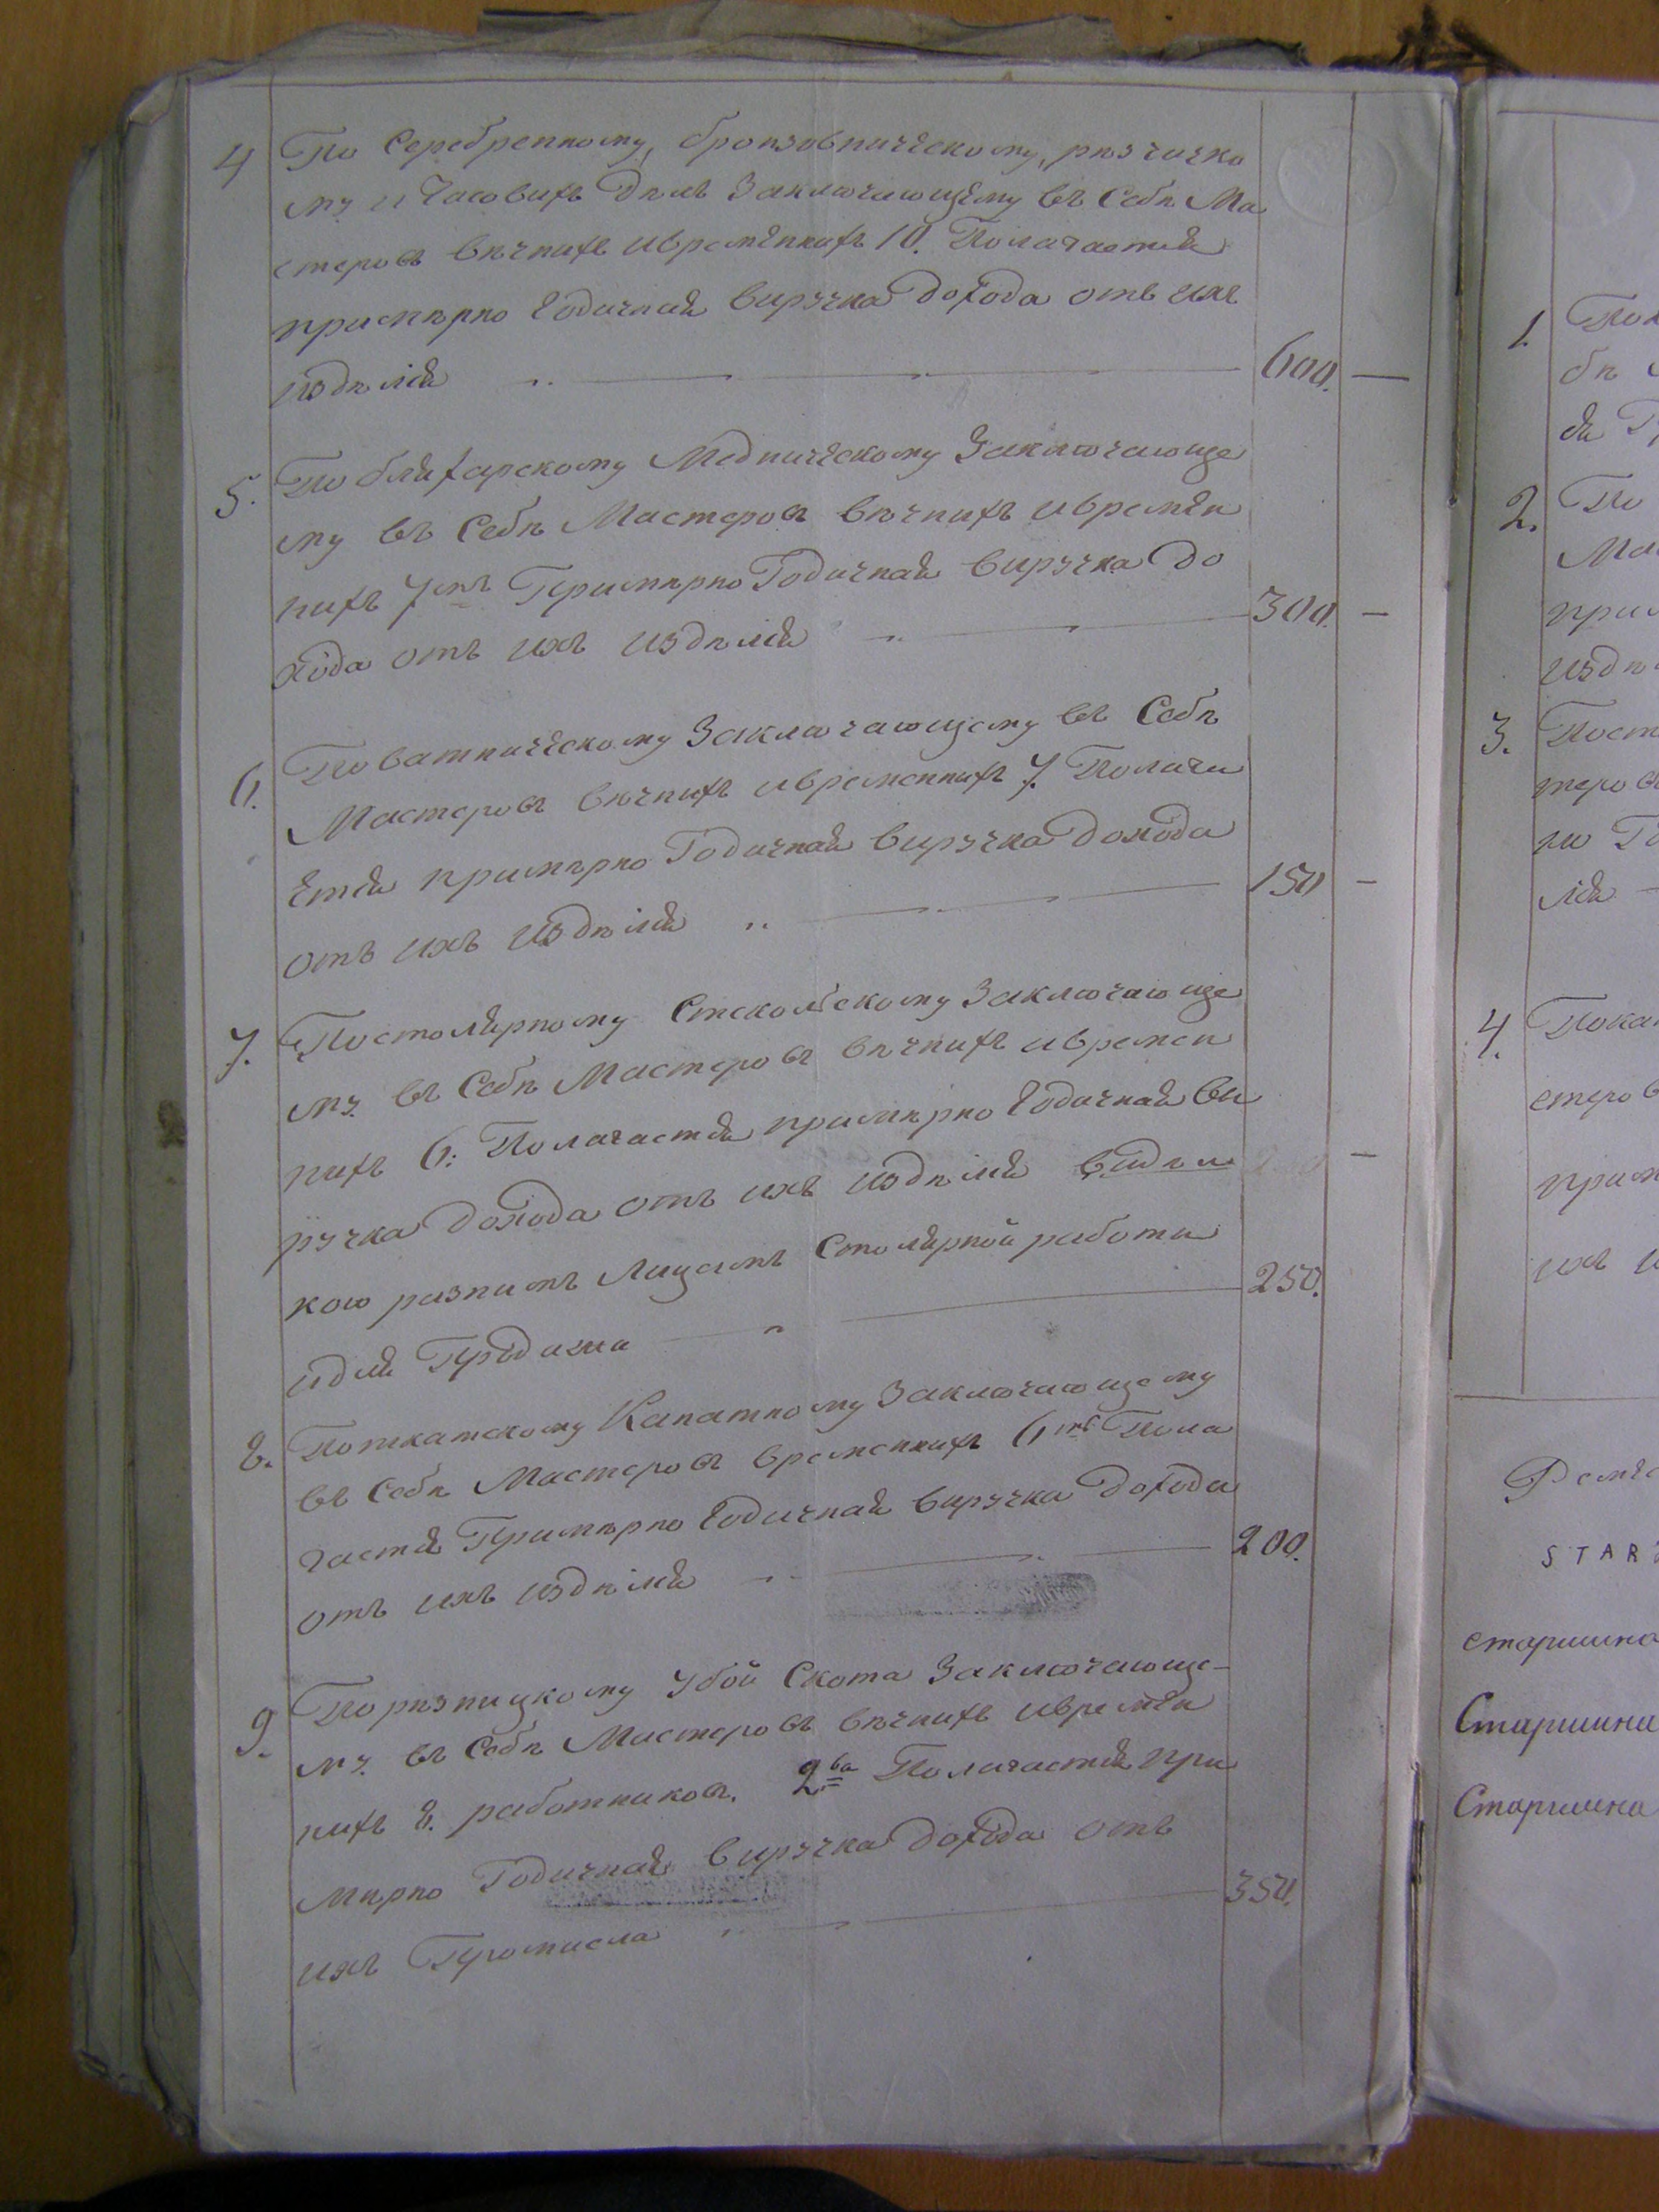 4 По Серебренному, бронзовническому, рѣзчико
му и Часовихъ Дѣлъ Заключающему въ Себѣ Ма
стеровъ вѣчнихъ ивремѣннихъ 10. Полагается
примѣрно Годичная виручка дохода отъ ихъ
издѣлія 600. —
5. По бляхарскому Медническому Заключающе
му въ Себѣ Мастеровъ вѣчнихъ ивремѣн
нихъ 7мъ Примѣрно Годичная виручка До
хода отъ ихъ издѣлія 300. —
6. Поватническому Заключающему въ Себѣ
Мастеровъ вѣчнихъ ивременнихъ 7. Полага
ется примѣрно Годичная виручка дохода
отъ ихъ издѣлія 150 —
7. Постолярному Стекольскому Заключающе
му. въ Себѣ Мастеровъ вѣчнихъ ивремен
нихъ 6: Полагается примѣрно Годичная ви
ручка дохода отъ ихъ издѣлія видѣл —
кою разнимъ Лицамъ Столярной работи
идля Продажи 250.
8. Поткатскому Канатному Заключающему
въ Себѣ Мастеровъ временнихъ 6ть Пола
гается Примѣрно Годичная виручка дохода
отъ ихъ издѣлія 200.
9. Порѣзницкому убой Скота Заключающе-
му. въ Себѣ Мастеровъ вѣчнихъ ивремѣн
нихъ 8. работниковъ. 2ва Полагается при
мѣрно Годичная виручка дохода отъ
ихъ Промисла 350.
1.
бѣ
2. По
Ма
изд
3. Пост
теровъ
но
лія
4.
стеров
прим
ихъ
STAR
старшина
Старшина
Старшина